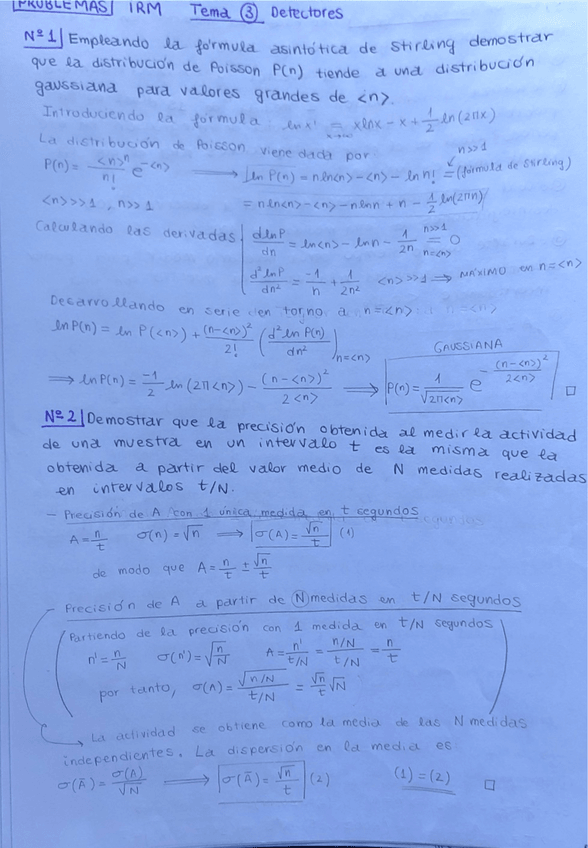 PROBLEMAS IRM Tema ③ Detectores
Nº1 Empleando la fórmula asintótica de Stirling demostrar
que la distribución de Poisson P(n) tiende a una distribución
gaussiana para valores grandes de <n>.
Introduciendo la fórmula: ln x! = xlnx - x + 1/2 ln(2πx)
x→∞
La distribución de Poisson viene dada por
n>>1
P(n) = <n>ⁿ/n! e^-<n> → ln P(n) = n ln<n> - <n> - ln n! = (fórmula de Stirling)
<n> >>1, n>>1 = n ln<n> - <n> - n ln n + n - 1/2 ln(2πn)
Calculando las derivadas dlnP/dn = ln<n> - ln n - 1/2n = 0
n>>1
n=<n>
d²lnP/dn² = -1/n + 1/2n² <n> >>1 ⇒ MÁXIMO en n=<n>
Desarrollando en serie en torno a n=<n>:
ln P(n) = ln P(<n>) + (n-<n>)²/2! (d² ln P(n)/dn²) n=<n>
GAUSSIANA
⇒ ln P(n) = -1/2 ln(2π<n>) - (n-<n>)²/2<n> ⇒ P(n) = 1/√2π<n> e^-(n-<n>)²/2<n> □
Nº2 Demostrar que la precisión obtenida al medir la actividad
de una muestra en un intervalo t es la misma que la
obtenida a partir del valor medio de N medidas realizadas
en intervalos t/N.
- Precisión de A con 1 única medida en t segundos
A = n/t σ(n) = √n ⇒ σ(A) = √n/t (1)
de modo que A = n/t ± √n/t
- Precisión de A a partir de Ⓝ medidas en t/N segundos
Partiendo de la precisión con 1 medida en t/N segundos
n' = n/N σ(n') = √n/N A = n'/t/N = n/N/t/N = n/t
por tanto, σ(A) = √n/N/t/N = √n/t √N
La actividad se obtiene como la media de las N medidas
independientes. La dispersión en la media es
σ(Ā) = σ(A)/√N ⇒ σ(Ā) = √n/t (2) (1) = (2) □